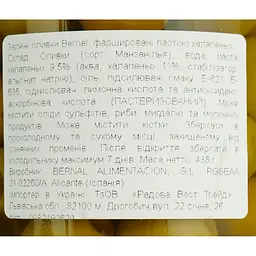 Зелені оливки Bernal фаршировані пастою халапеньо.
Склад: Оливки (сорт Манзанілья), вода, паста
халапеньо 9,5% (аква, халапеньо 11%, стабілізатор
альгінат натрію), сіль, підсилювачі смаку Е-621, Е-
635, підкислювач лимонна кислота та антиоксидант
аскорбінова кислота (ПАСТЕРИЗОВАНИЙ). Може
містити сліди сульфітів, риби мигдалю та молочних
продуктів. Може містити кістки. Зберігати в
прохолодному та сухому місці, захищеному від
сонячних променів. Після відкриття зберігати в
холодильнику максимум 7 днів. Маса нетто: 436 г.
Виробник: BERNAL ALIMENTACION, S.L.
Alicante (Іспанія)
Імпортер в Україні: ТзОВ «Радова Вест Трейд»
Львівська обл., 82100 м. Дрогобич, вул. 22 січня,